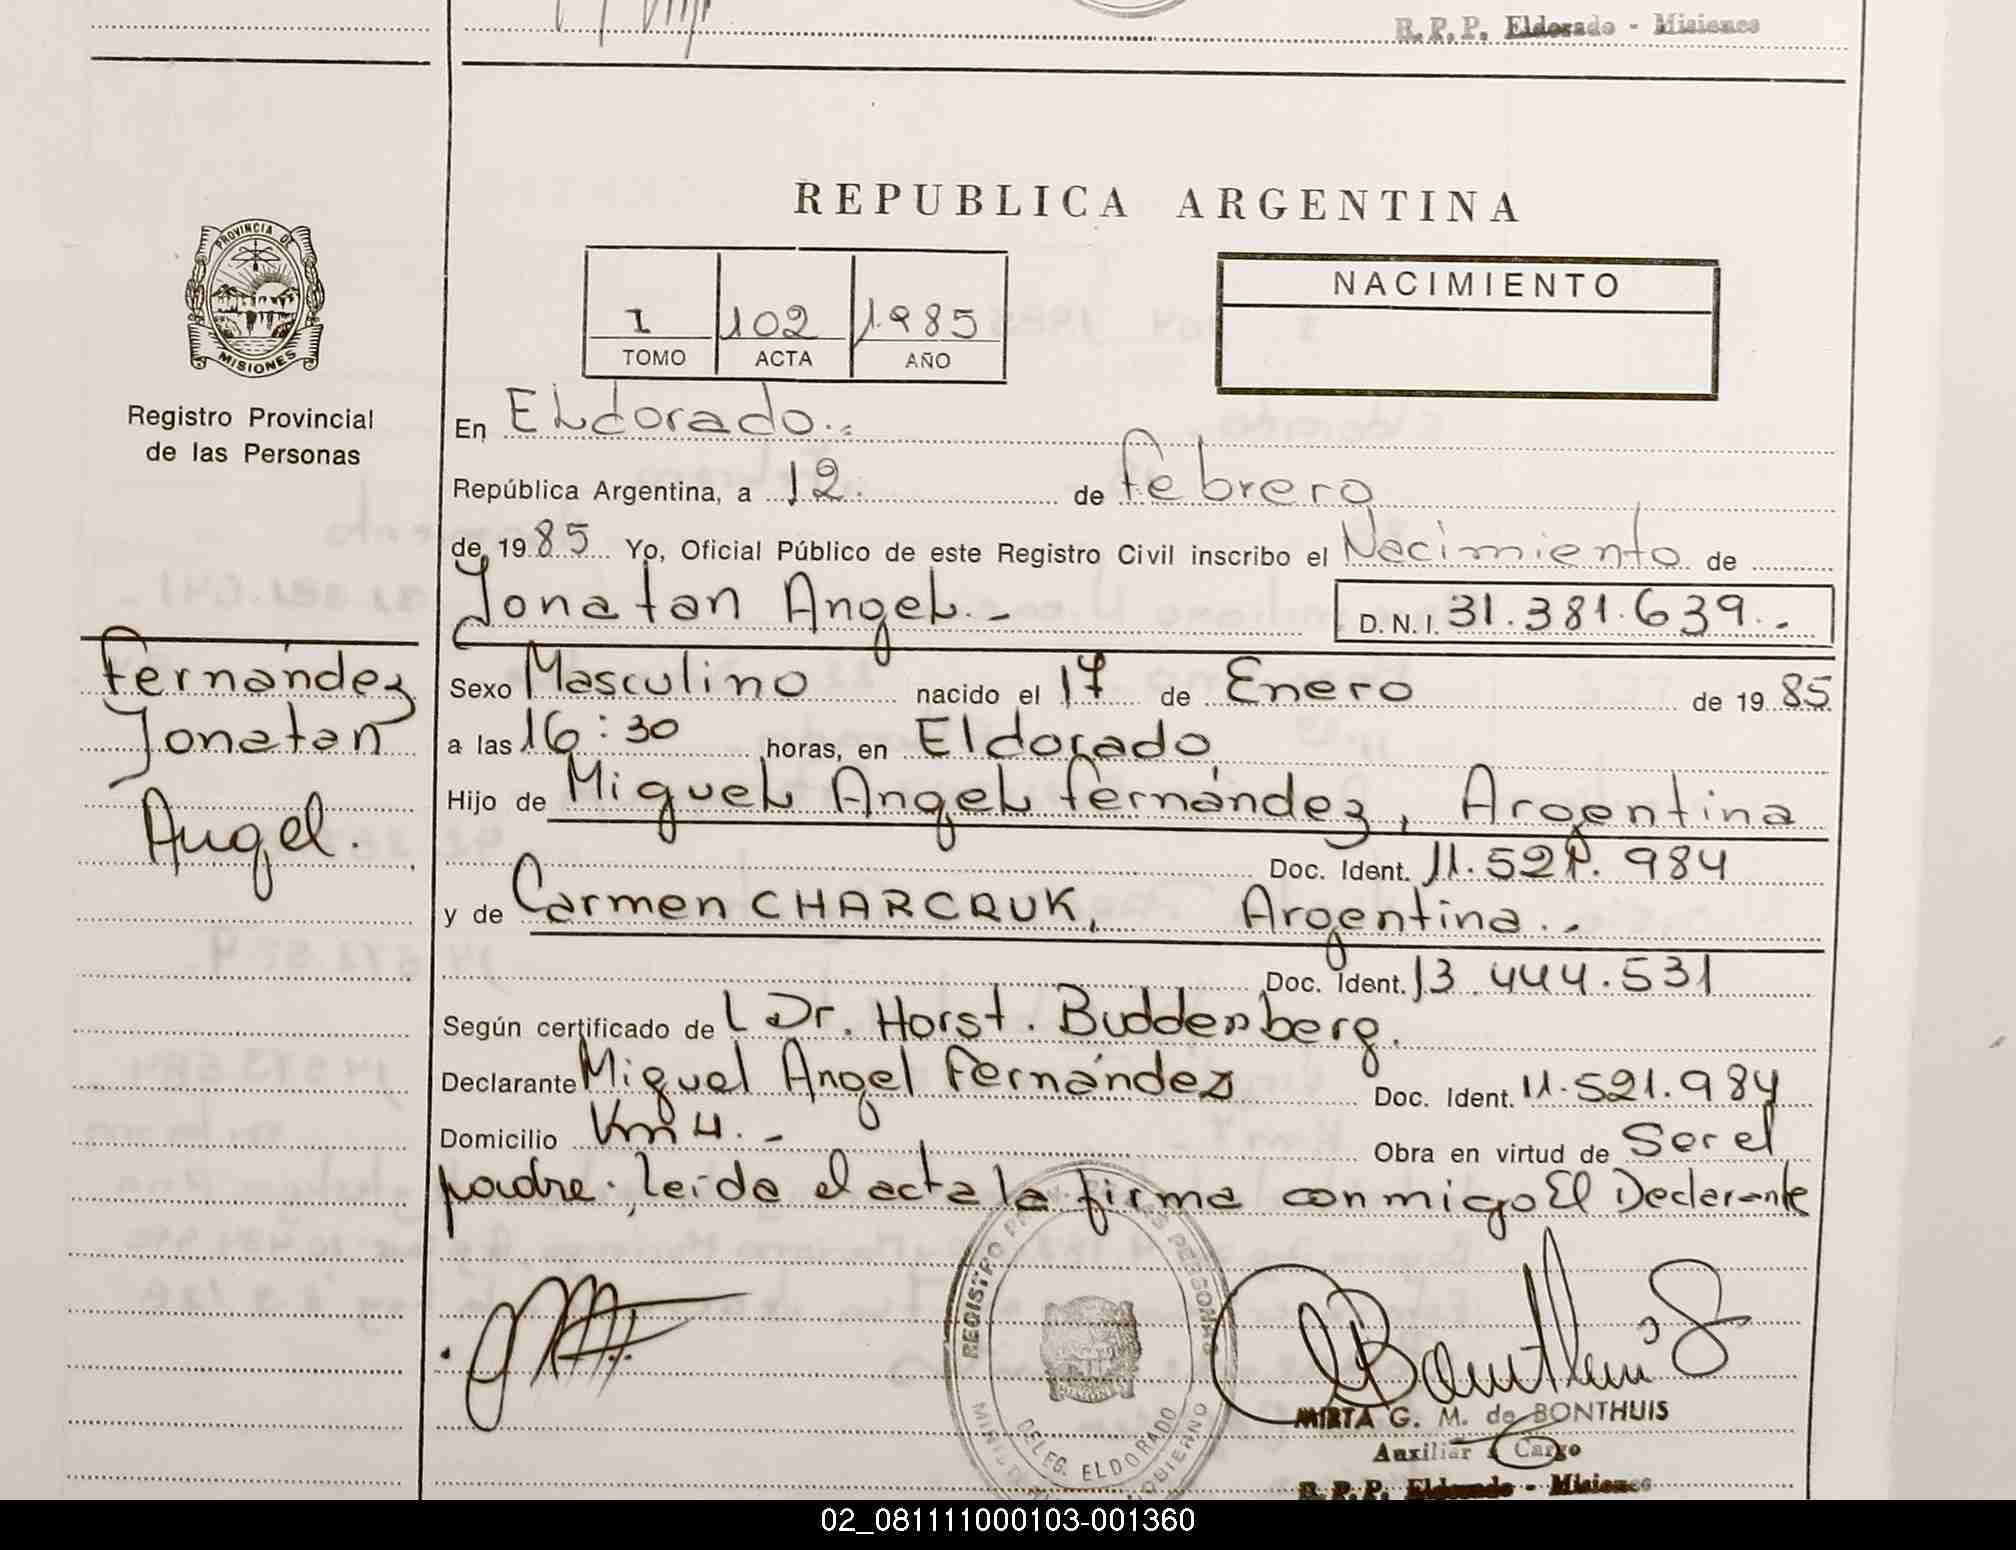 R.P.P. Eldorado - Misiones
REPUBLICA ARGENTINA
PROVINCIA DE
MISIONES
Registro Provincial
de las Personas
I 102 1985
TOMO ACTA AÑO
NACIMIENTO
En Eldorado..
República Argentina, a 12. de febrero
de 1985 Yo, Oficial Público de este Registro Civil inscribo el Nacimiento de
Jonatan Angel.- D.N.I. 31.381.639.-
Fernández
Jonatan
Angel.
Sexo Masculino nacido el 17 de Enero de 1985
a las 16:30 horas, en Eldorado
Hijo de Miguel Angel Fernández, Argentina
Doc. Ident. 11.521.984
y de Carmen CHARCRUK, Argentina.-
Doc. Ident. 13.444.531
Según certificado de l Dr. Horst. Buddenberg.
Declarante Miguel Angel Fernández Doc. Ident. 11.521.984
Domicilio Km 4.- Obra en virtud de Ser el
padre; leída el acta la firma conmigo El Declarante
REGISTRO PROV. DE LAS PERSONAS
DELEG. ELDORADO
MIRTA G. M. de BONTHUIS
Auxiliar a Cargo
R.P.P. Eldorado - Misiones
02_081111000103-001360